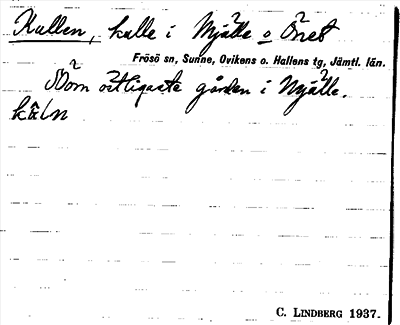 Kullen, kulle i Mjälle o Önet
Frösö sn, Sunne, Ovikens o. Hallens tg, Jämtl. län.
Som östligaste gården i Mjälle.
C. LINDBERG 1937.